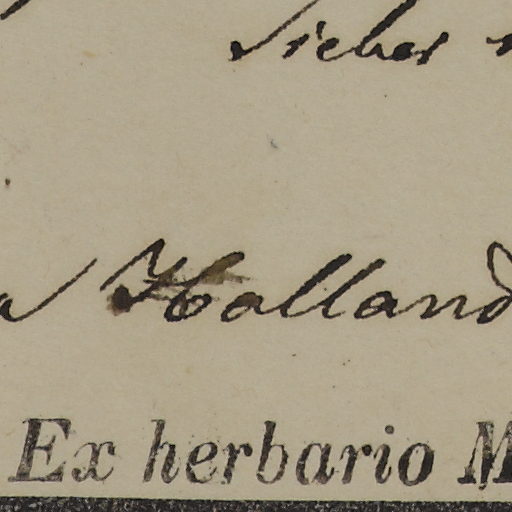 Sieber
Holland
Ex herbario M